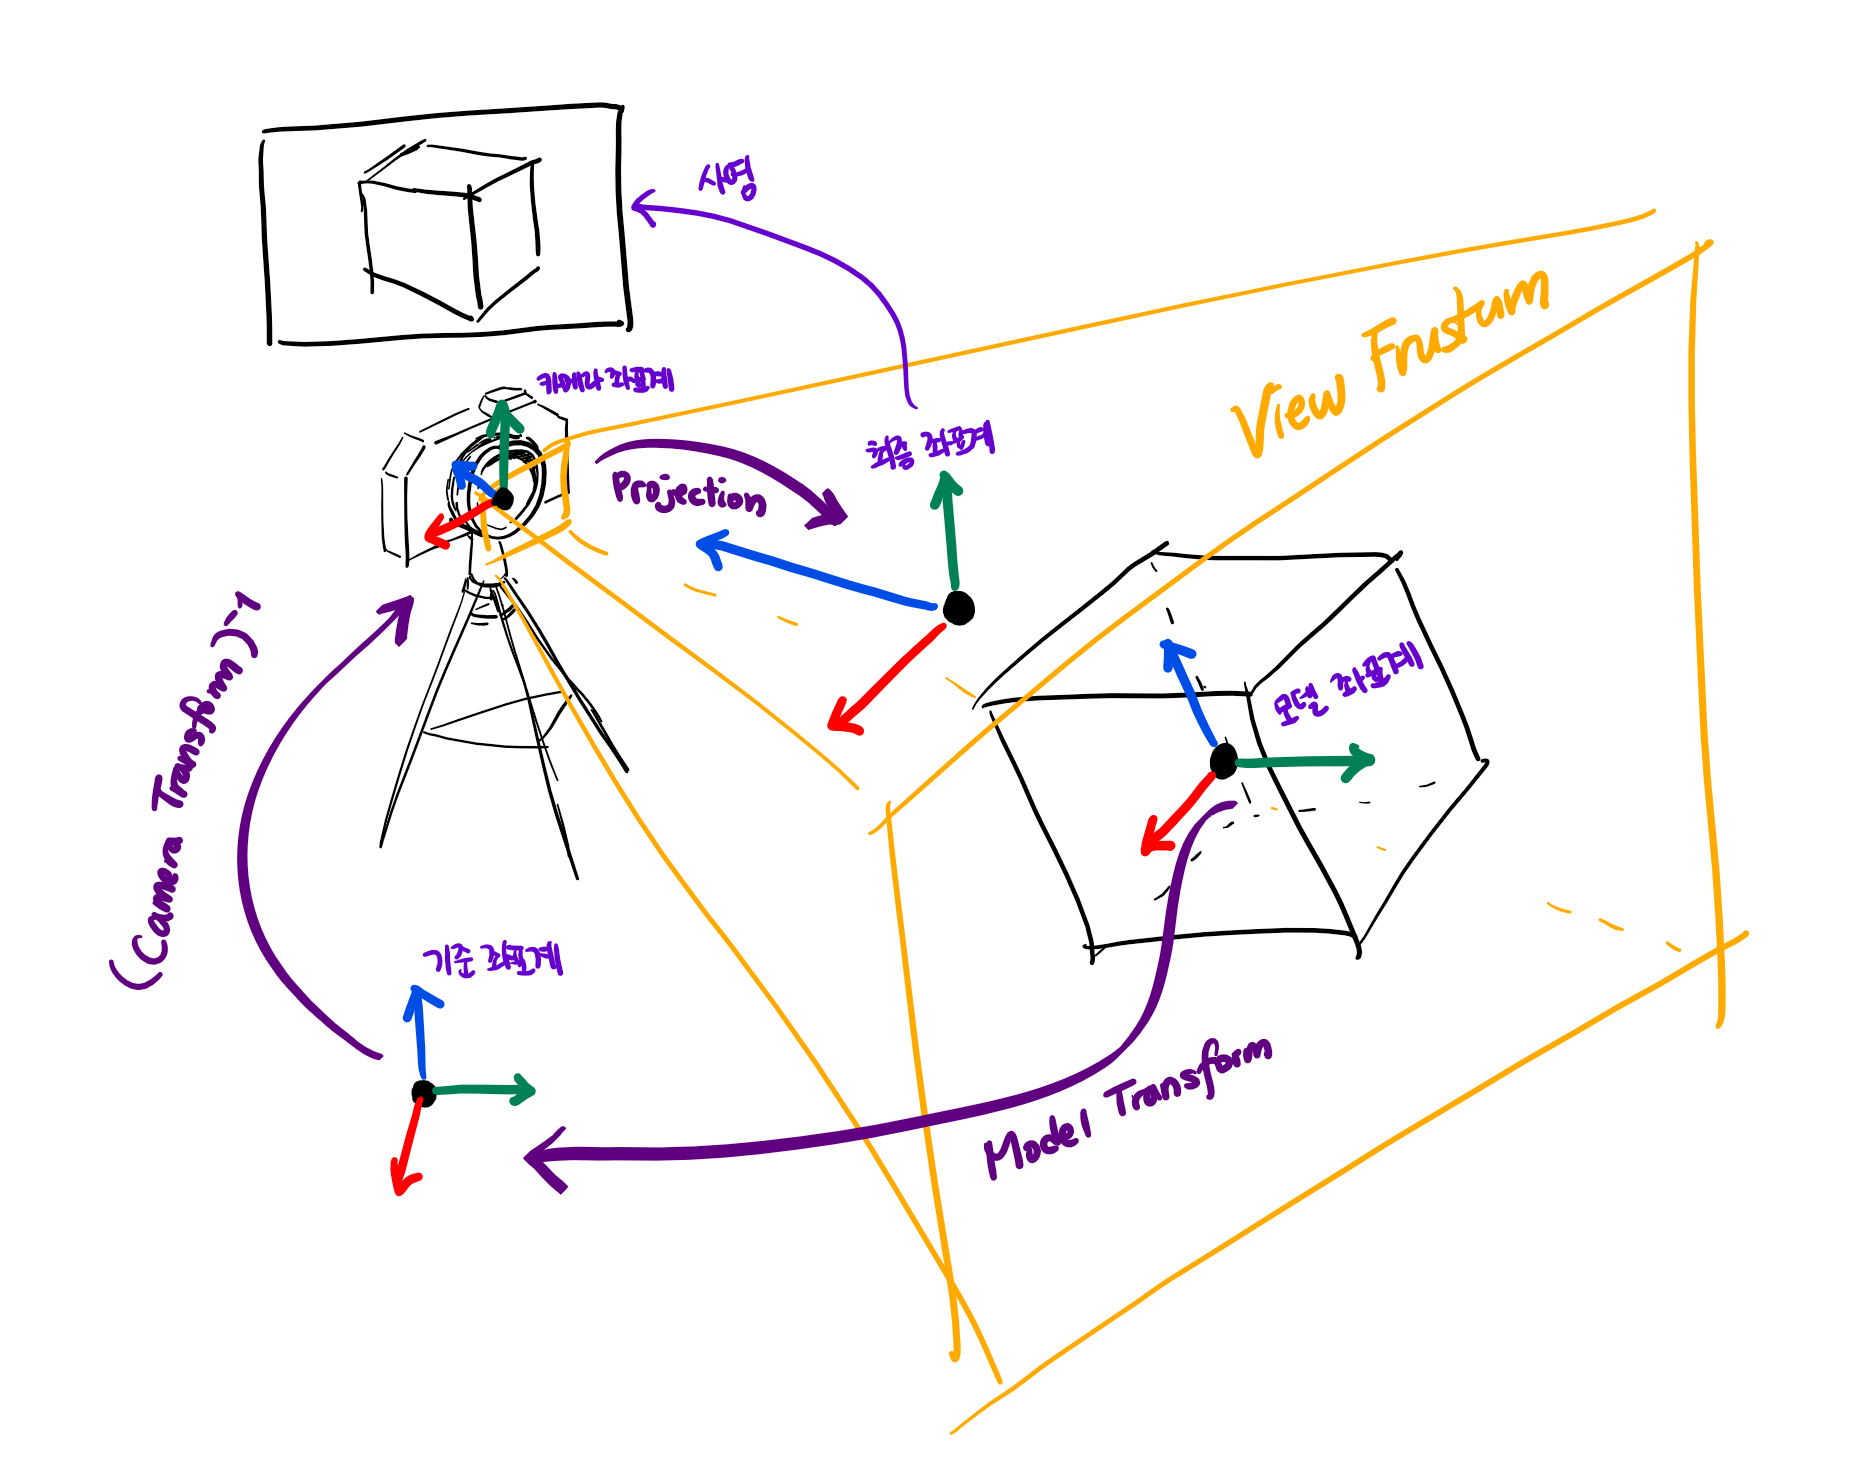 사영
카메라 좌표계
View Frustum
최종 좌표계
Projection
모델 좌표계
(Camera Transform)⁻¹
기준 좌표계
Model Transform